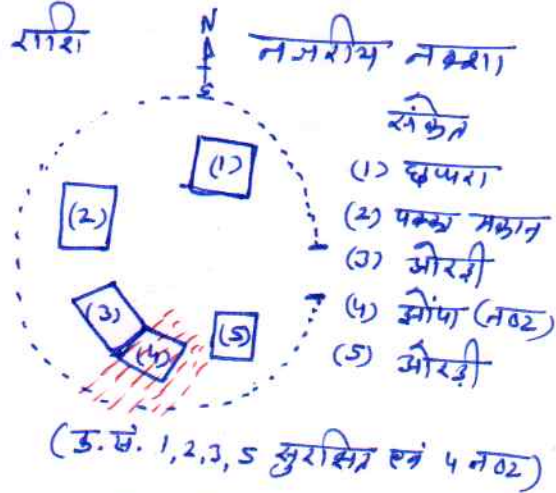 राशि
N
S
नजरीय नक्शा
संकेत
(1) छप्परा
(2) पक्का मकान
(3) ओरडी
(4) झोंपा (नष्ट)
(5) ओरड़ी
(1)
(2)
(3)
(4)
(5)
(क्र.सं. 1,2,3,5 सुरक्षित एवं 4 नष्ट)